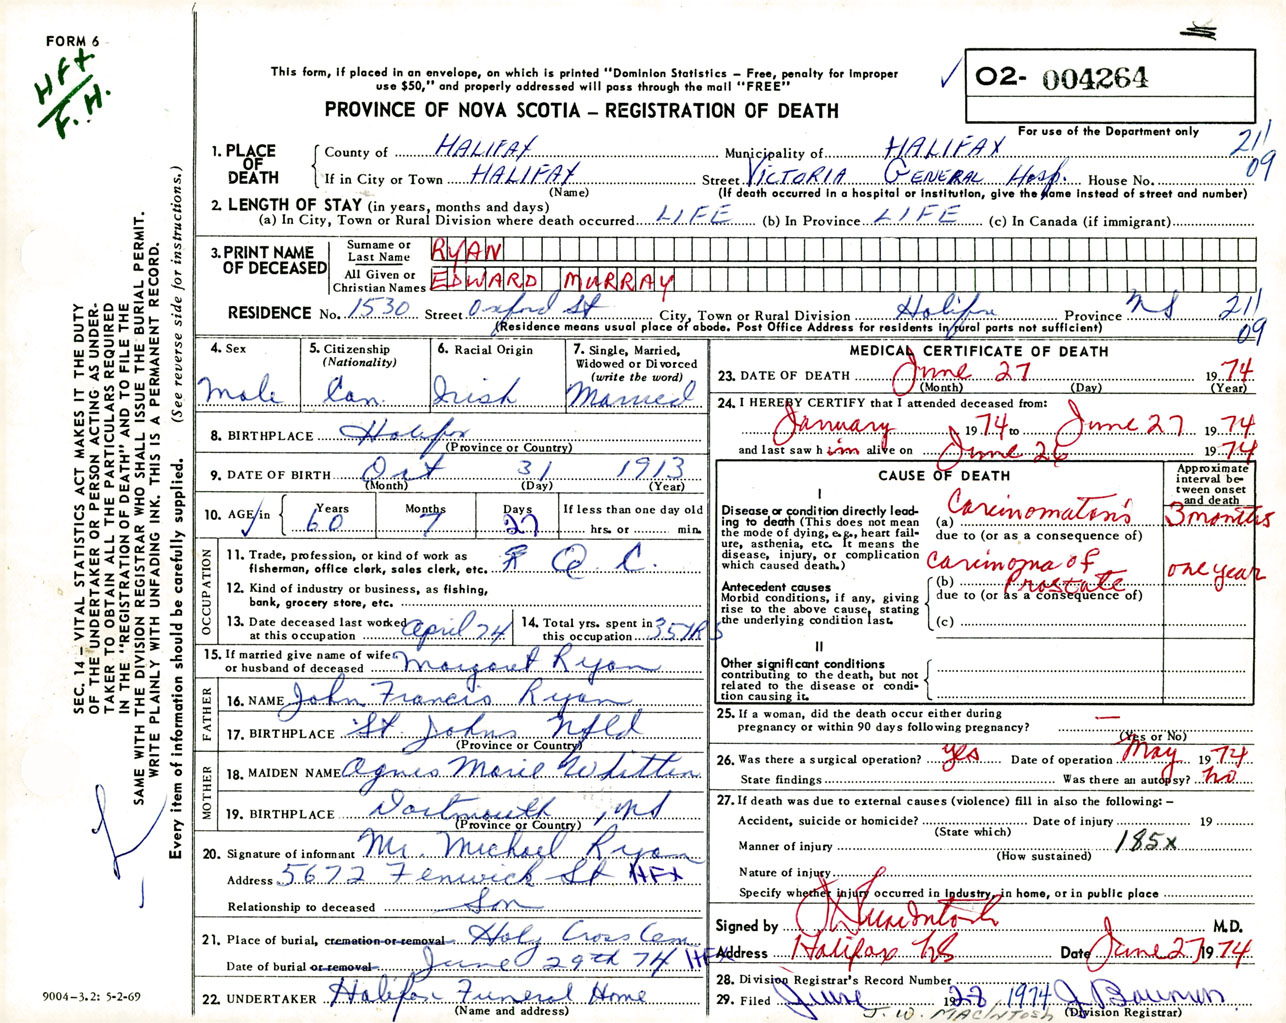 FORM 6
HFX
F.H.
This form, if placed in an envelope, on which is printed "Dominion Statistics – Free, penalty for improper
use $50," and properly addressed will pass through the mail "FREE"
PROVINCE OF NOVA SCOTIA – REGISTRATION OF DEATH
02- 004264
For use of the Department only
21/
09
1. PLACE OF DEATH
County of HALIFAX Municipality of HALIFAX
If in City or Town HALIFAX Street VICTORIA GENERAL Hosp. House No.
(Name) (If death occurred in a hospital or institution, give the name instead of street and number)
2. LENGTH OF STAY (in years, months and days)
(a) In City, Town or Rural Division where death occurred LIFE (b) In Province LIFE (c) In Canada (if immigrant)
3. PRINT NAME OF DECEASED
Surname or Last Name RYAN
All Given or Christian Names EDWARD MURRAY
RESIDENCE No. 1530 Street Oxford St City, Town or Rural Division Halifax Province NS 21/
09
(Residence means usual place of abode. Post Office Address for residents in rural parts not sufficient)
4. Sex
Male
5. Citizenship
(Nationality)
Can
6. Racial Origin
Irish
7. Single, Married,
Widowed or Divorced
(write the word)
Married
8. BIRTHPLACE Halifax
(Province or Country)
9. DATE OF BIRTH Oct 31 1913
(Month) (Day) (Year)
10. AGE Years 60 Months 7 Days 27 If less than one day old
hrs. or min.
OCCUPATION
11. Trade, profession, or kind of work as
fisherman, office clerk, sales clerk, etc.
12. Kind of industry or business, as fishing,
bank, grocery store, etc.
13. Date deceased last worked
at this occupation April 74
14. Total yrs. spent in
this occupation 35 YRS
15. If married give name of wife
or husband of deceased Margaret Ryan
FATHER
16. NAME John Francis Ryan
17. BIRTHPLACE St. Johns Nfld
(Province or Country)
MOTHER
18. MAIDEN NAME Agnes Marie Whitten
19. BIRTHPLACE Dartmouth, NS
(Province or Country)
20. Signature of informant Mr. Michael Ryan
Address 5672 Fenwick St HFX
Relationship to deceased Son
21. Place of burial, cremation or removal Holy Cross Cem
Date of burial or removal June 29th 74 HFX
22. UNDERTAKER Halifax Funeral Home
(Name and address)
MEDICAL CERTIFICATE OF DEATH
23. DATE OF DEATH June 27 1974
(Month) (Day) (Year)
24. I HEREBY CERTIFY that I attended deceased from:
January 1974 to June 27 1974
and last saw him alive on June 26 1974
CAUSE OF DEATH
Approximate
interval be-
tween onset
and death
I
Disease or condition directly lead-
ing to death (This does not mean
the mode of dying, e.g., heart fail-
ure, asthenia, etc. It means the
disease, injury, or complication
which caused death.)
(a) Carcinomatosis 3 months
due to (or as a consequence of)
Antecedent causes
Morbid conditions, if any, giving
rise to the above cause, stating
the underlying condition last.
(b) Carcinoma of Prostate one year
due to (or as a consequence of)
(c)
II
Other significant conditions
contributing to the death, but not
related to the disease or condi-
tion causing it.
25. If a woman, did the death occur either during
pregnancy or within 90 days following pregnancy? —
(Yes or No)
26. Was there a surgical operation? yes Date of operation May 1974
State findings Was there an autopsy? no
27. If death was due to external causes (violence) fill in also the following: –
Accident, suicide or homicide? Date of injury 19
(State which)
Manner of injury 185X
(How sustained)
Nature of injury
Specify whether injury occurred in industry, in home, or in public place
Signed by M.D.
Address Halifax NS Date June 27 1974
28. Division Registrar's Record Number
29. Filed June 1928, 1974
J. W. MACINTOSH (Division Registrar)
SEC. 14 – VITAL STATISTICS ACT MAKES IT THE DUTY
OF THE UNDERTAKER OR PERSON ACTING AS UNDER-
TAKER TO OBTAIN ALL THE PARTICULARS REQUIRED
IN THE "REGISTRATION OF DEATH" AND TO FILE THE
SAME WITH THE DIVISION REGISTRAR WHO SHALL ISSUE THE BURIAL PERMIT.
WRITE PLAINLY WITH UNFADING INK. THIS IS A PERMANENT RECORD.
Every item of information should be carefully supplied. (See reverse side for instructions.)
9004-3.2: 5-2-69